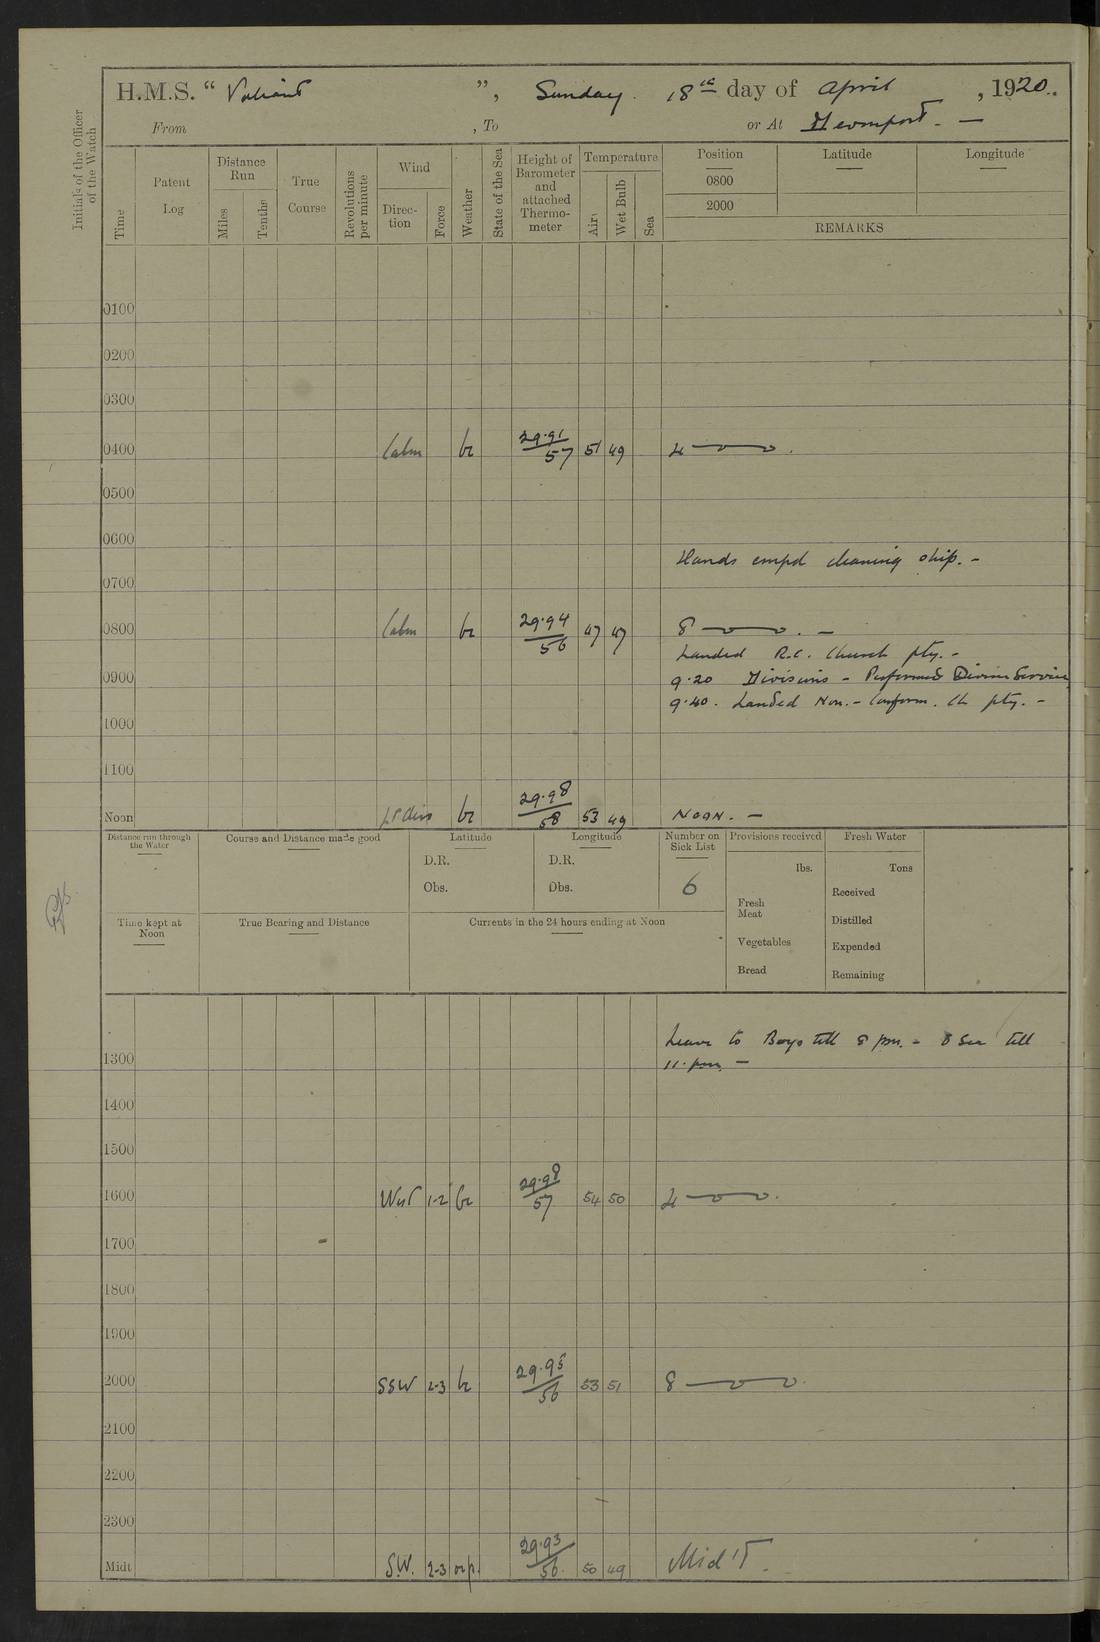 H.M.S. “ Valiant ”, Sunday 18th day of April , 1920.
From , To or At Devonport. —
Initials of the Officer of the Watch
Time
Patent Log
Distance Run
Miles
Tenths
True Course
Revolutions per minute
Wind
Direc-tion
Force
Weather
State of the Sea
Height of Barometer and attached Thermo-meter
Temperature
Air
Wet Bulb
Sea
Position
0800
2000
Latitude
Longitude
REMARKS
0100
0200
0300
0400 Calm bc 29.91/57 51 49 4
0500
0600
Hands empd cleaning ship. -
0700
0800 Calm bc 29.94/56 47 47 8 . -
Landed R.C. Church pty. -
0900 9.20 Divisions - Performed Divine Service
9.40. Landed Non. - Conform. Ch pty. -
1000
1100
Noon bc 29.98/58 53 49 NOON. -
Distance run through the Water
Course and Distance made good
Latitude
D.R.
Obs.
Longitude
D.R.
Obs.
Number on Sick List
6
Provisions received
lbs.
Fresh Meat
Vegetables
Bread
Fresh Water
Tons
Received
Distilled
Expended
Remaining
Time kept at Noon
True Bearing and Distance
Currents in the 24 hours ending at Noon
Leave to Boys till 8 pm. - till
1300 11. pm. -
1400
1500
1600 West 1-2 bc 29.98/57 54 50 4
1700
1800
1900
2000 SSW 2-3 bc 29.95/56 53 51 8
2100
2200
2300
Midt S.W. 2-3 29.93/56. 50 49 Mid't.